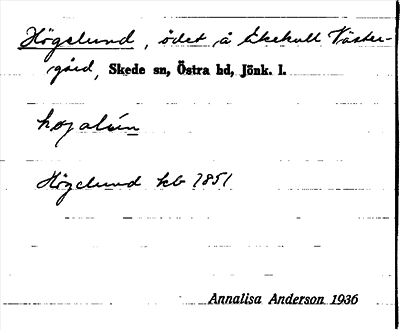 Högslund, ödet å Ekekull Väster-
gård, Skede sn, Östra hd, Jönk. l.
høgslún
Högelund kb 1851
Annalisa Anderson 1936